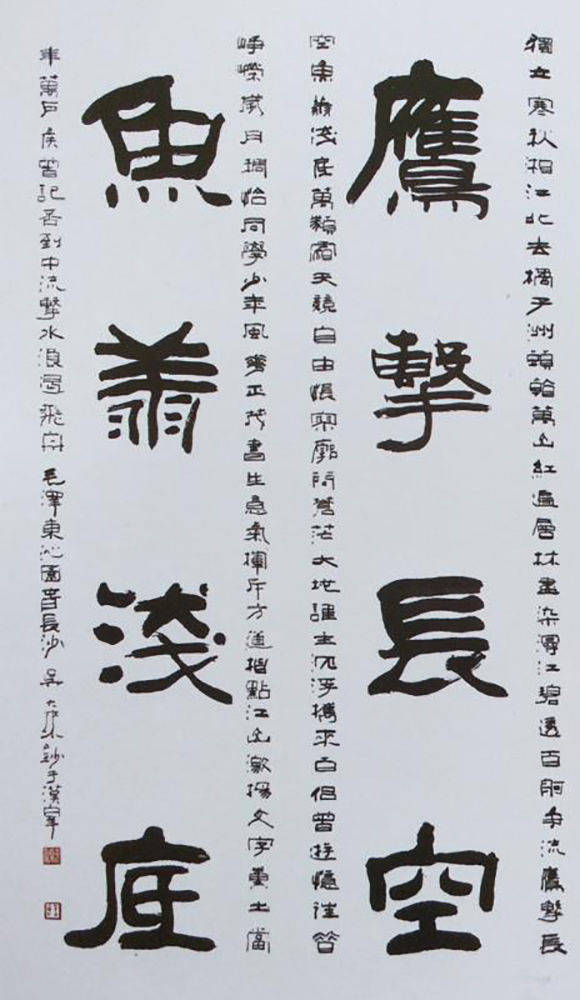 獨立寒秋湘江北去橘子洲頭看萬山紅遍層林盡染漫江碧透百舸爭流鷹擊長
鷹擊長空
空魚翔淺底萬類霜天競自由悵寥廓問蒼茫大地誰主沉浮攜來百侶曾遊憶往昔
崢嶸歲月稠恰同學少年風華正茂書生意氣揮斥方遒指點江山激揚文字糞土當
魚翔淺底
年萬戶侯曾記否到中流擊水浪遏飛舟 毛澤東沁園春長沙 吳 鈔于漢皋